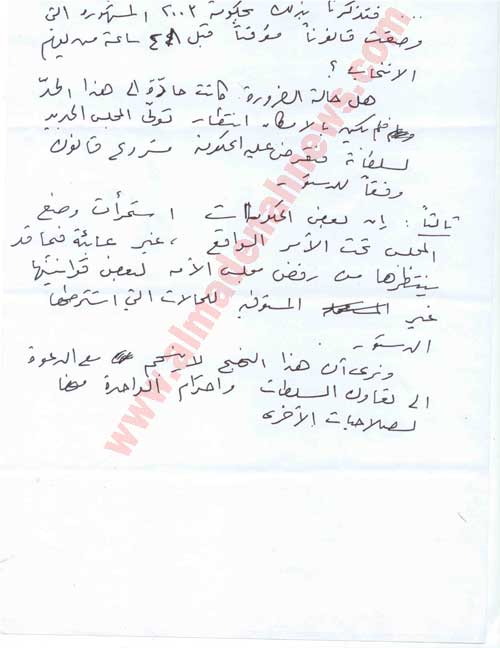 ... فتذكرنا بذلك بحكومة ٢٠٠٣ المشهورة التي
وضعت قانوناً مؤقتاً قبل ٤٨ ساعة من يوم
الانتخاب ؟
هل حالة الضرورة كانت حادّة لـ هذا الحدّ
فلم يكن بالإمكان انتظار تولّي المجلس الجديد
لسلطاته فتعرض عليه الحكومة مشروع قانون
وفقاً للدستور.
ثالثاً : إن بعض الحكومات استمرأت وضع
المجلس تحت الأمر الواقع ، غير عابئة فيما قد
ينتظرها من رفض مجلس الأمة لبعض قوانينها
غير المستوفية للحالات التي اشترطها
الدستور.
ونرى أن هذا النهج لا ينسجم مع الدعوة
الى تعاون السلطات واحترام الواحدة منها
لصلاحيات الأخرى
www.almadenahnews.com